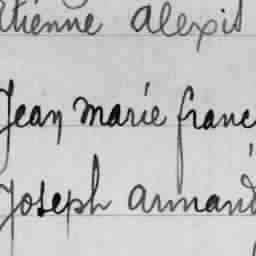 Etienne Alexis
Jean Marie franc
Joseph Armand